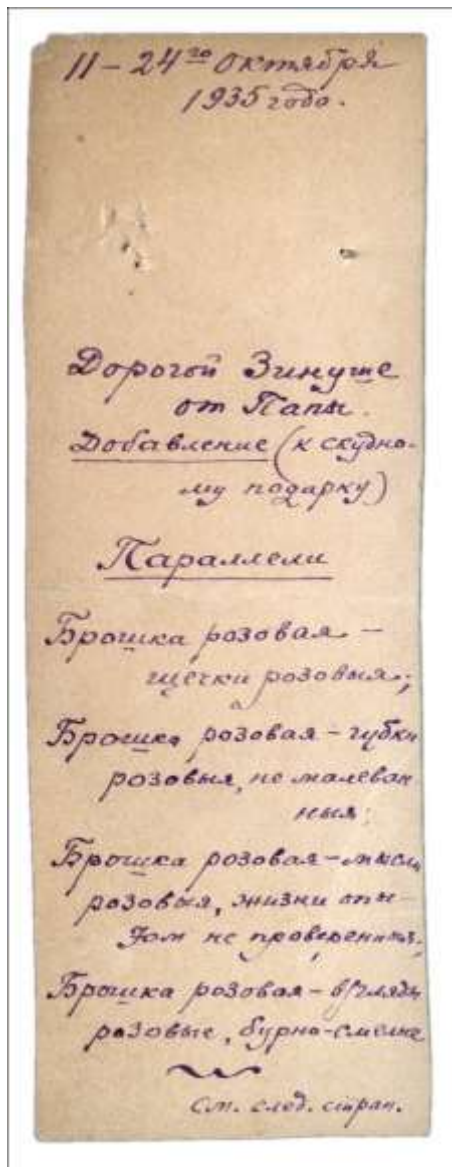 11 – 24го Октября
1935 года.
Дорогой Зинуше
от Папы.
Добавление (к скудно-
му подарку)
Параллели
Брошка розовая –
щечки розовыя;
Брошка розовая – губки
розовыя, не малеван
ныя;
Брошка розовая – мысли
розовыя, жизни опы-
том не проверенныя;
Брошка розовая – взгляды
розовые, бурно-смелые
См. след. стран.